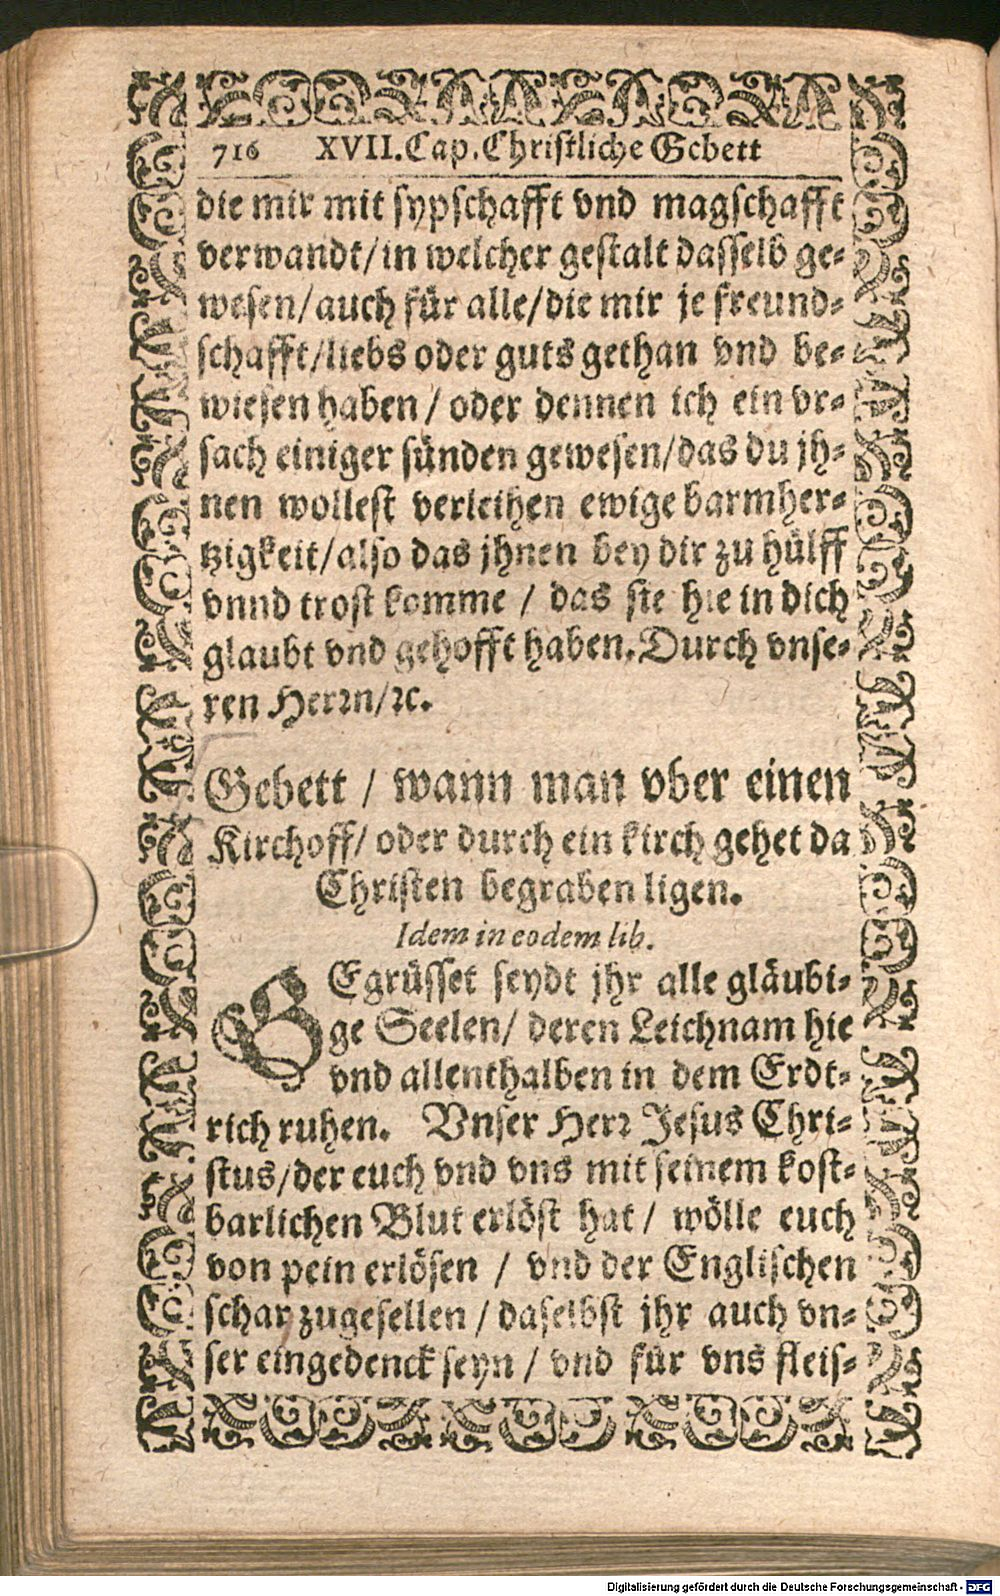 716 XVII.Cap.Christliche Gebett
die mir mit sypschafft vnd magschafft
verwandt/in welcher gestalt dasselb ge-
wesen/auch für alle/die mir je freund-
schafft/liebs oder guts gethan vnd be-
wiesen haben/ oder dennen ich ein vr-
sach einiger sünden gewesen/das du jh-
nen wollest verleihen ewige barmher-
tzigkeit/also das jhnen bey dir zu hülff
vnnd trost komme / das sie hie in dich
glaubt vnd gehofft haben. Durch vnse-
ren Herrn/ꝛc.
Gebett / wann man vber einen
Kirchoff/ oder durch ein kirch gehet da
Christen begraben ligen.
Idem in eodem lib.
GEgrüsset seydt jhr alle gläubi-
ge Seelen/ deren Leichnam hie
vnd allenthalben in dem Erdt-
rich ruhen. Vnser Herr Jesus Chri-
stus/der euch vnd vns mit seinem kost-
barlichen Blut erlöst hat/ wölle euch
von pein erlösen / vnd der Englischen
schar zugesellen / daselbst jhr auch vn-
ser eingedenck seyn / vnd für vns fleis-
Digitalisierung gefördert durch die Deutsche Forschungsgemeinschaft - DFG